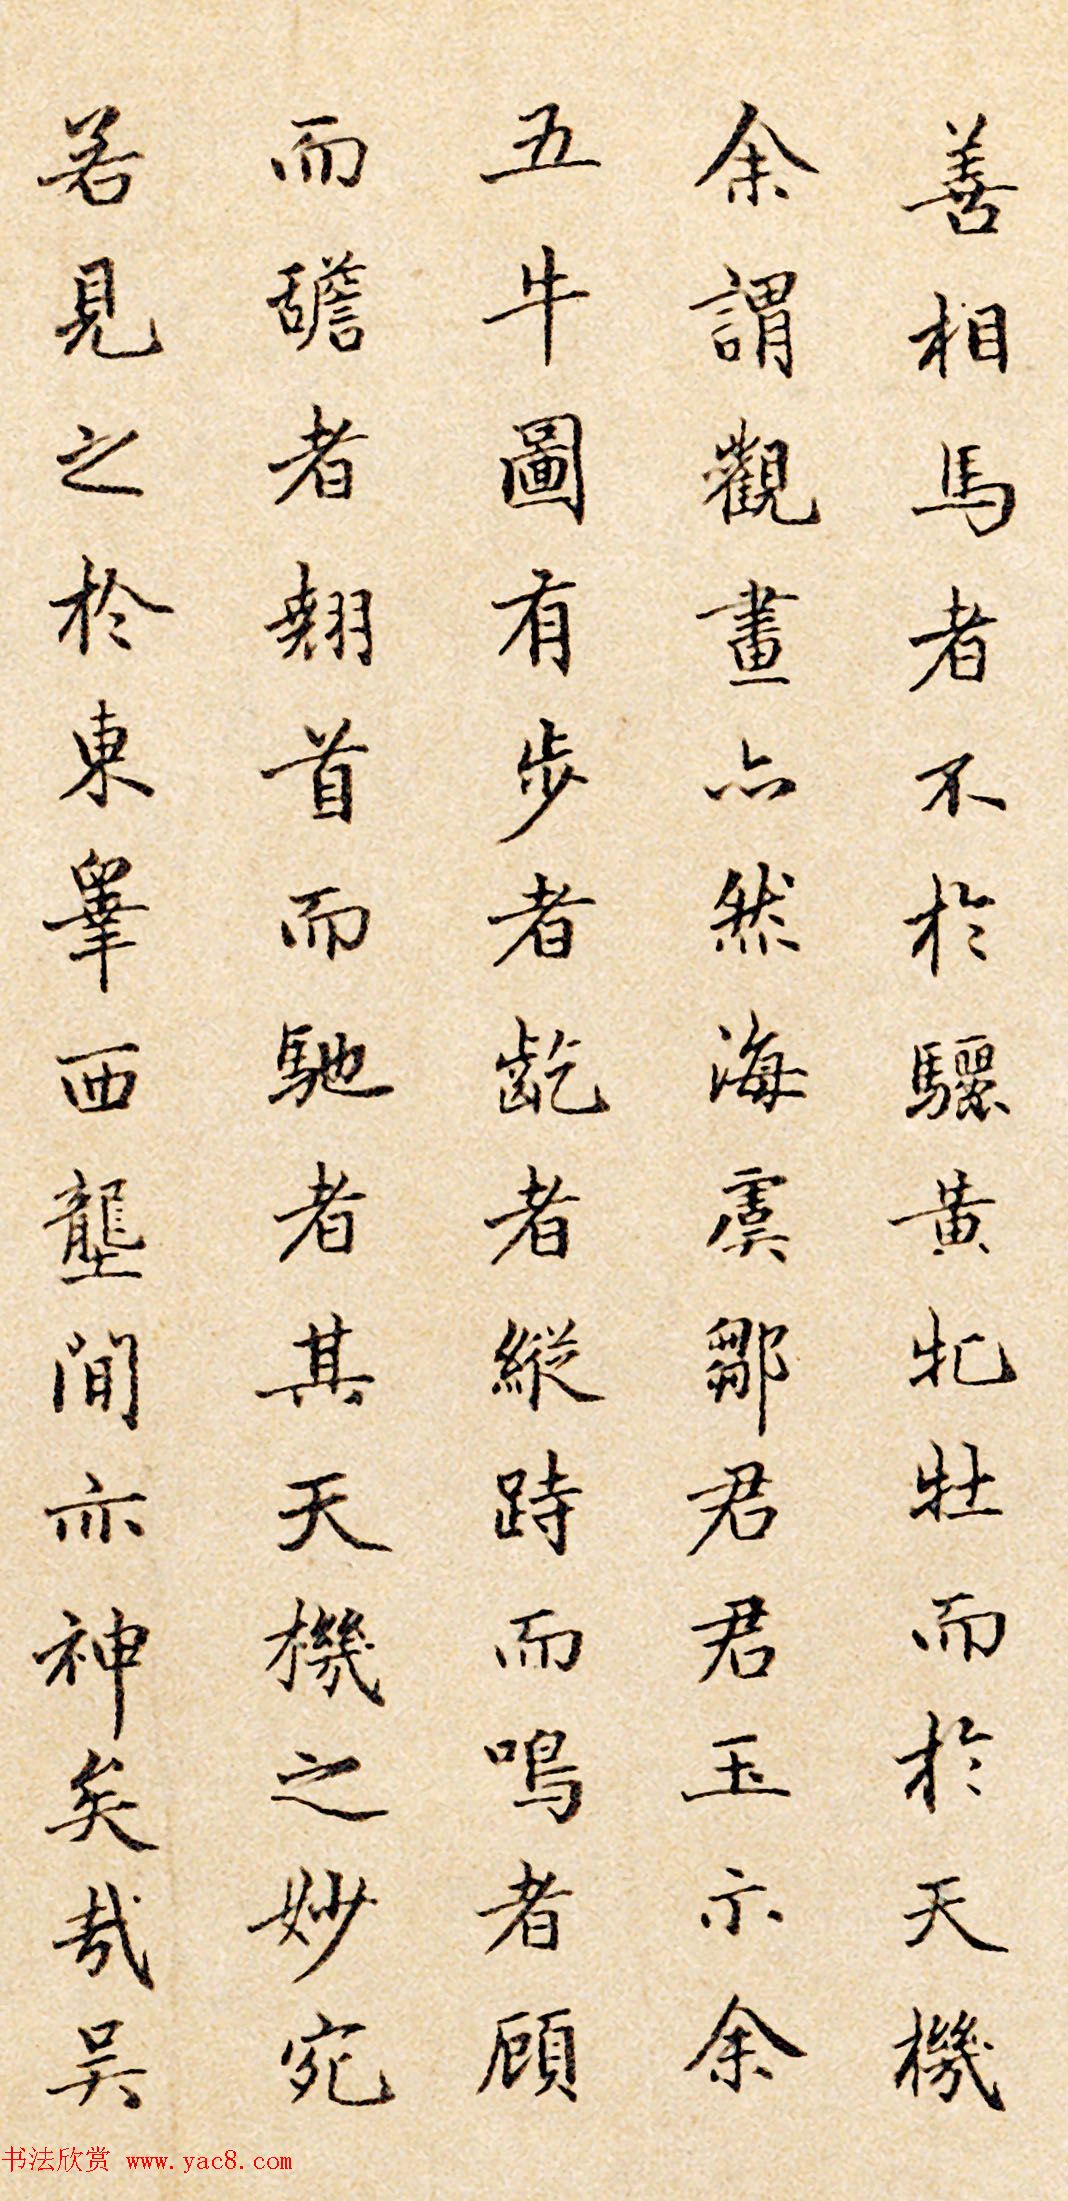 善相馬者不於驪黃牝牡而於天機
余謂觀畫亦然海虞鄒君君玉示余
五牛圖有步者齕者縱跱而鳴者顧
而者翹首而馳者其天機之妙宛
若見之於東睾西壟間亦神矣哉吳
书法欣赏 www.yac8.com